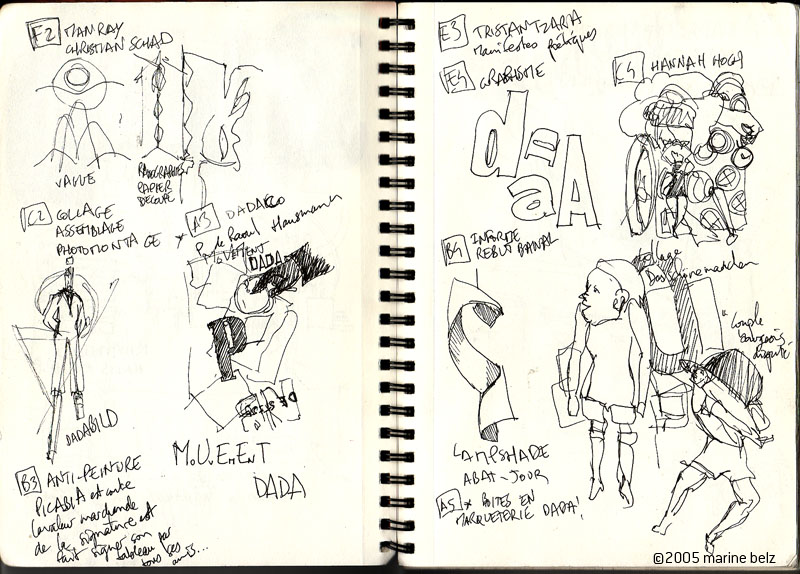 F2 MAN RAY
CHRISTIAN SCHAD
VALUE
RAYOGRAPHIES
PAPIER
DÉCOUPÉ
C2 COLLAGE
ASSEMBLAGE
PHOTOMONTAGE
A3 DADACO
P. de Raoul Hausmann
MOUVEMENT
DADA
P
DADABILD
M.U.E.E.N.T
DADA
B3 ANTI-PEINTURE
PICABIA et contre
la valeur marchande
de la signature est
fait signer son
tableau par
tous ses
amis...
E3 TRISTAN TZARA
Manifestes poétiques
E4 GRAPHISME
dadA
C4 HANNAH HÖCH
B4 INFORME
REBUT BANAL
Collage
"Couple
bourgeois
LAMPSHADE
ABAT-JOUR
A5 * BOITES EN
MARQUETERIE DADA!
©2005 marine belz